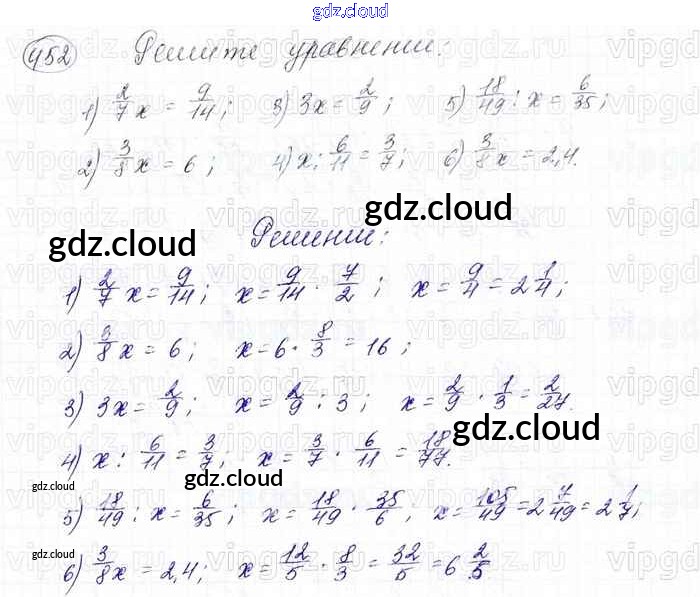 gdz.cloud
452 Решите уравнении:
1) 2/7 x = 9/14; 3) 3x = 2/9; 5) 18/49 : x = 6/35;
2) 3/8 x = 6; 4) x : 6/11 = 3/7; 6) 3/8 x = 2,4.
gdz.cloud
Решении:
gdz.cloud
1) 2/7 x = 9/14; x = 9/14 · 7/2; x = 9/4 = 2 1/4;
2) 3/8 x = 6; x = 6 · 8/3 = 16;
3) 3x = 2/9; x = 2/9 : 3; x = 2/9 · 1/3 = 2/27.
gdz.cloud
4) x : 6/11 = 3/7; x = 3/7 · 6/11 = 18/77.
gdz.cloud
gdz.cloud
5) 18/49 : x = 6/35; x = 18/49 · 35/6, x = 105/49 = 2 7/49 = 2 1/7;
gdz.cloud
6) 3/8 x = 2,4; x = 12/5 · 8/3 = 32/5 = 6 2/5.